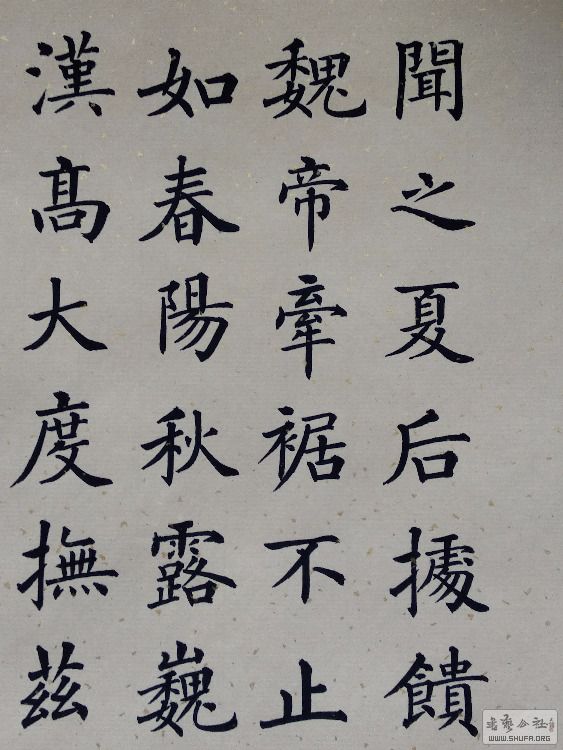 聞之夏后據饋
魏帝牽裾不止
如春陽秋露巍
漢高大度撫茲
书艺公社
WWW.SHUFA.ORG